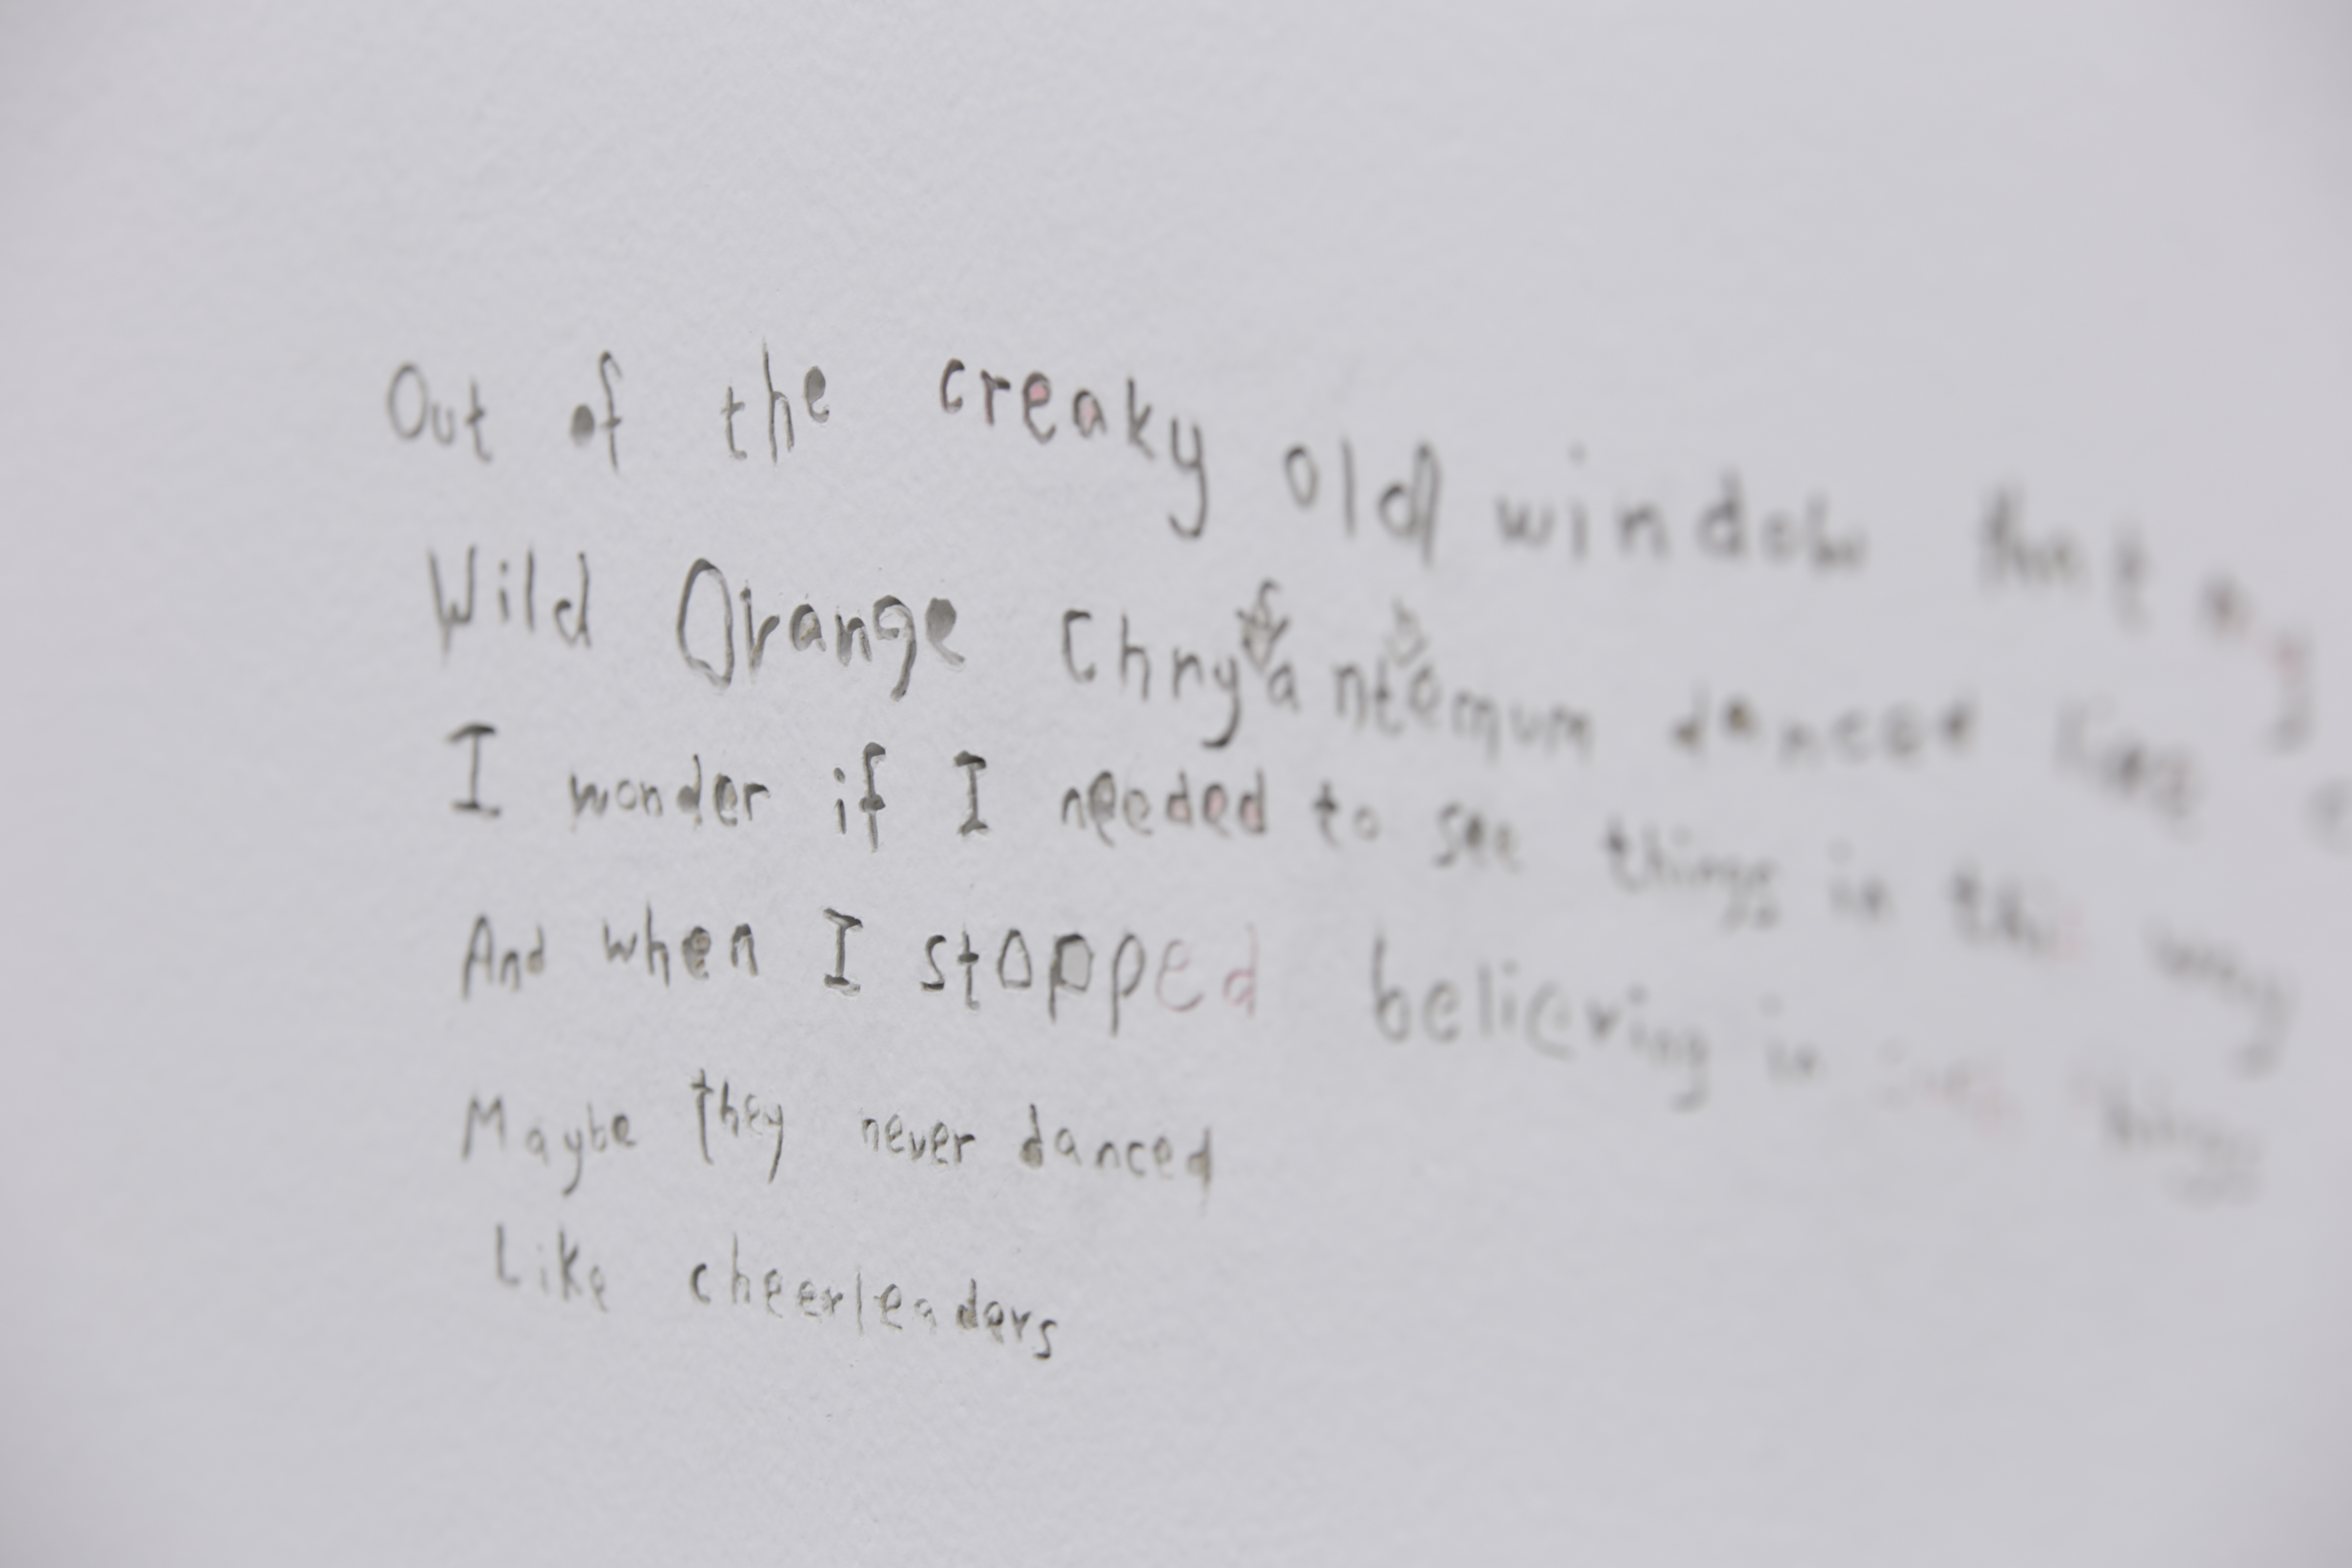 Out of the creaky old window that my
Wild Orange Chrysanthemum danced like
I wonder if I needed to see things in this way
And when I stopped believing in things
Maybe they never danced
Like cheerleaders